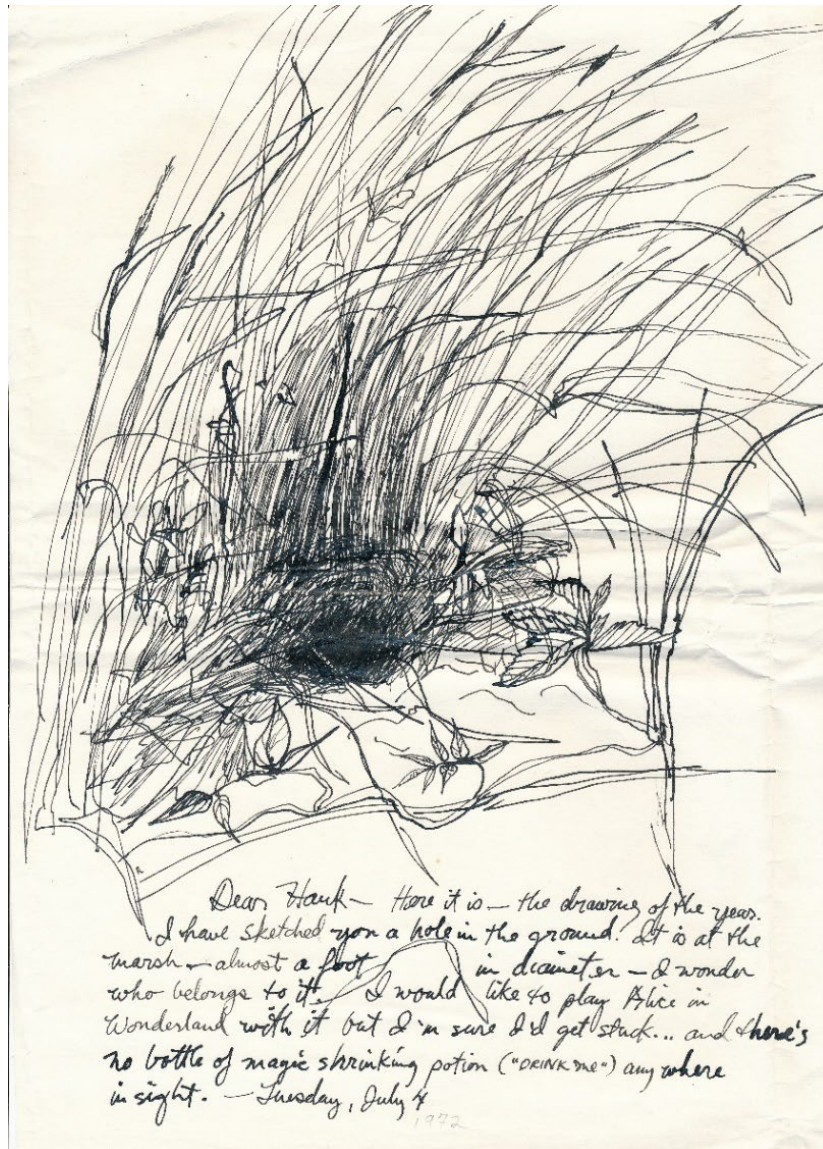 Dear Hank — Here it is — the drawing of the year.
I have sketched you a hole in the ground. It is at the
marsh — almost a foot in diameter — I wonder
who belongs to it. I would like to play Alice in
Wonderland with it but I'm sure I'd get stuck... and there's
no bottle of magic shrinking potion ("DRINK ME") anywhere
in sight. — Tuesday, July 4
1972